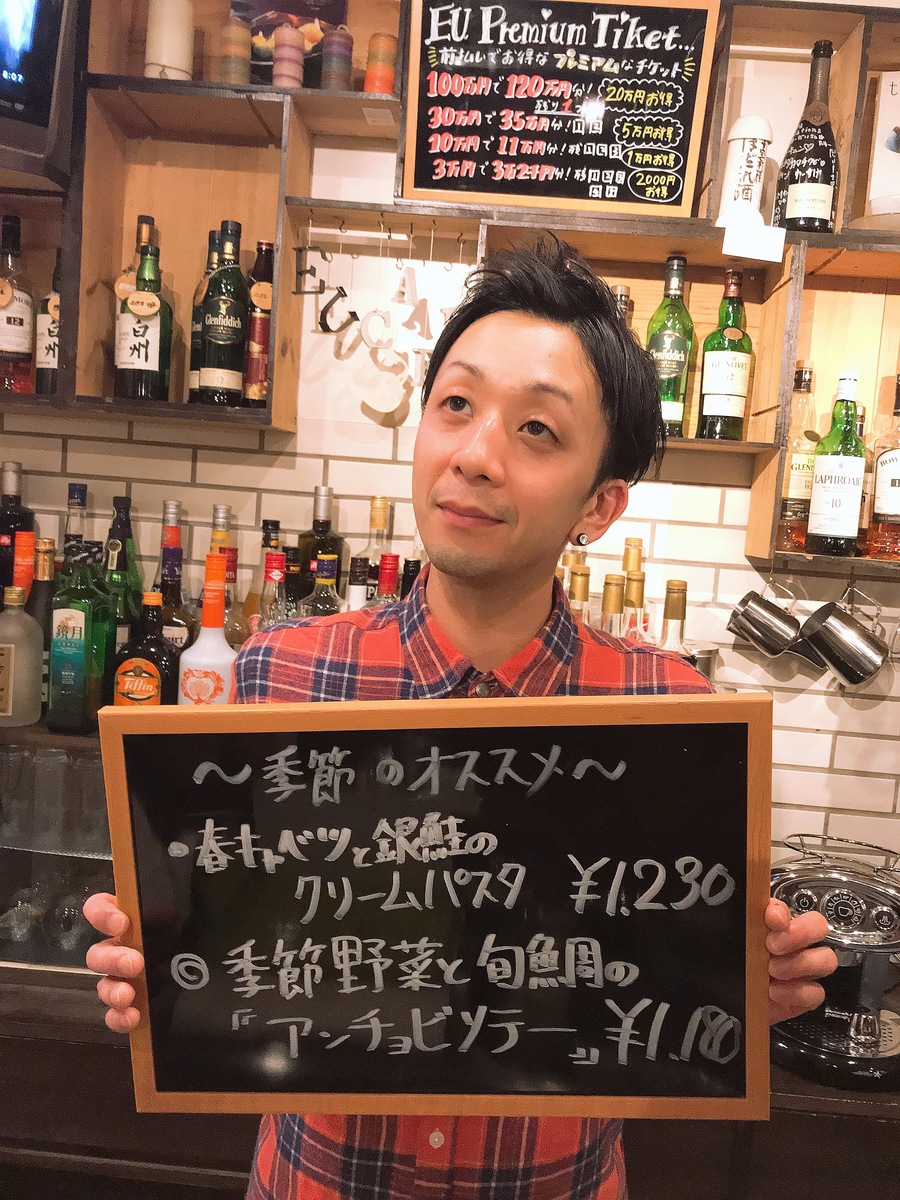 EU Premium Tiket...
前払いでお得なプレミアムなチケット
100万円で120万円分! 20万円お得
残り1
30万円で35万円分! 5万円お得
10万円で11万円分! 残 1万円お得
3万円で3万2千円分! 残 2000円お得
白州
Glenfiddich
12
Glenfiddich
GLENLIVET
12
LAPHROAIG
10
鏡月
Tiffin
〜季節のオススメ〜
・春キャベツと銀鮭の
クリームパスタ ¥1.230
◎季節野菜と旬鯛の
『アンチョビソテー』 ¥1.180